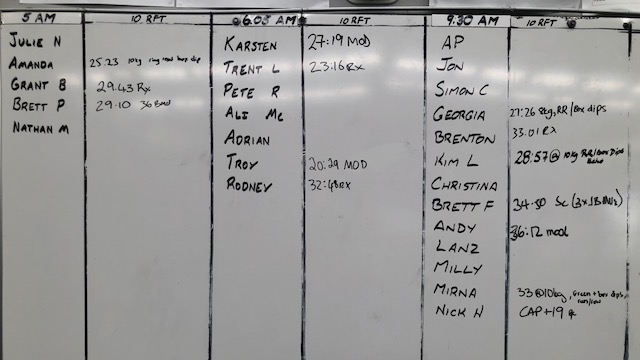 5 AM 10 RFT
JULIE N
AMANDA 25.23 10kg ring row box dip
GRANT B 29.43 Rx
BRETT P 29.10
NATHAN M
6.05 AM 10 RFT
KARSTEN 27:19 MOD
TRENT L 23:16 RX
PETE R
ALI MC
ADRIAN
TROY 20:29 MOD
RODNEY 32:48 RX
9.30 AM 10 RFT
AP
JON
SIMON C
GEORGIA 27:26 8kg, RR/Box dips
BRENTON 33.01 RX
KIM L 28:57@ 10kg RR/Box Dips
CHRISTINA
BRETT F 34.50 Sc
ANDY 36:12 mod
LANZ
MILLY
MIRNA 33@10kg, Green + box dips,
NICK H CAP+19